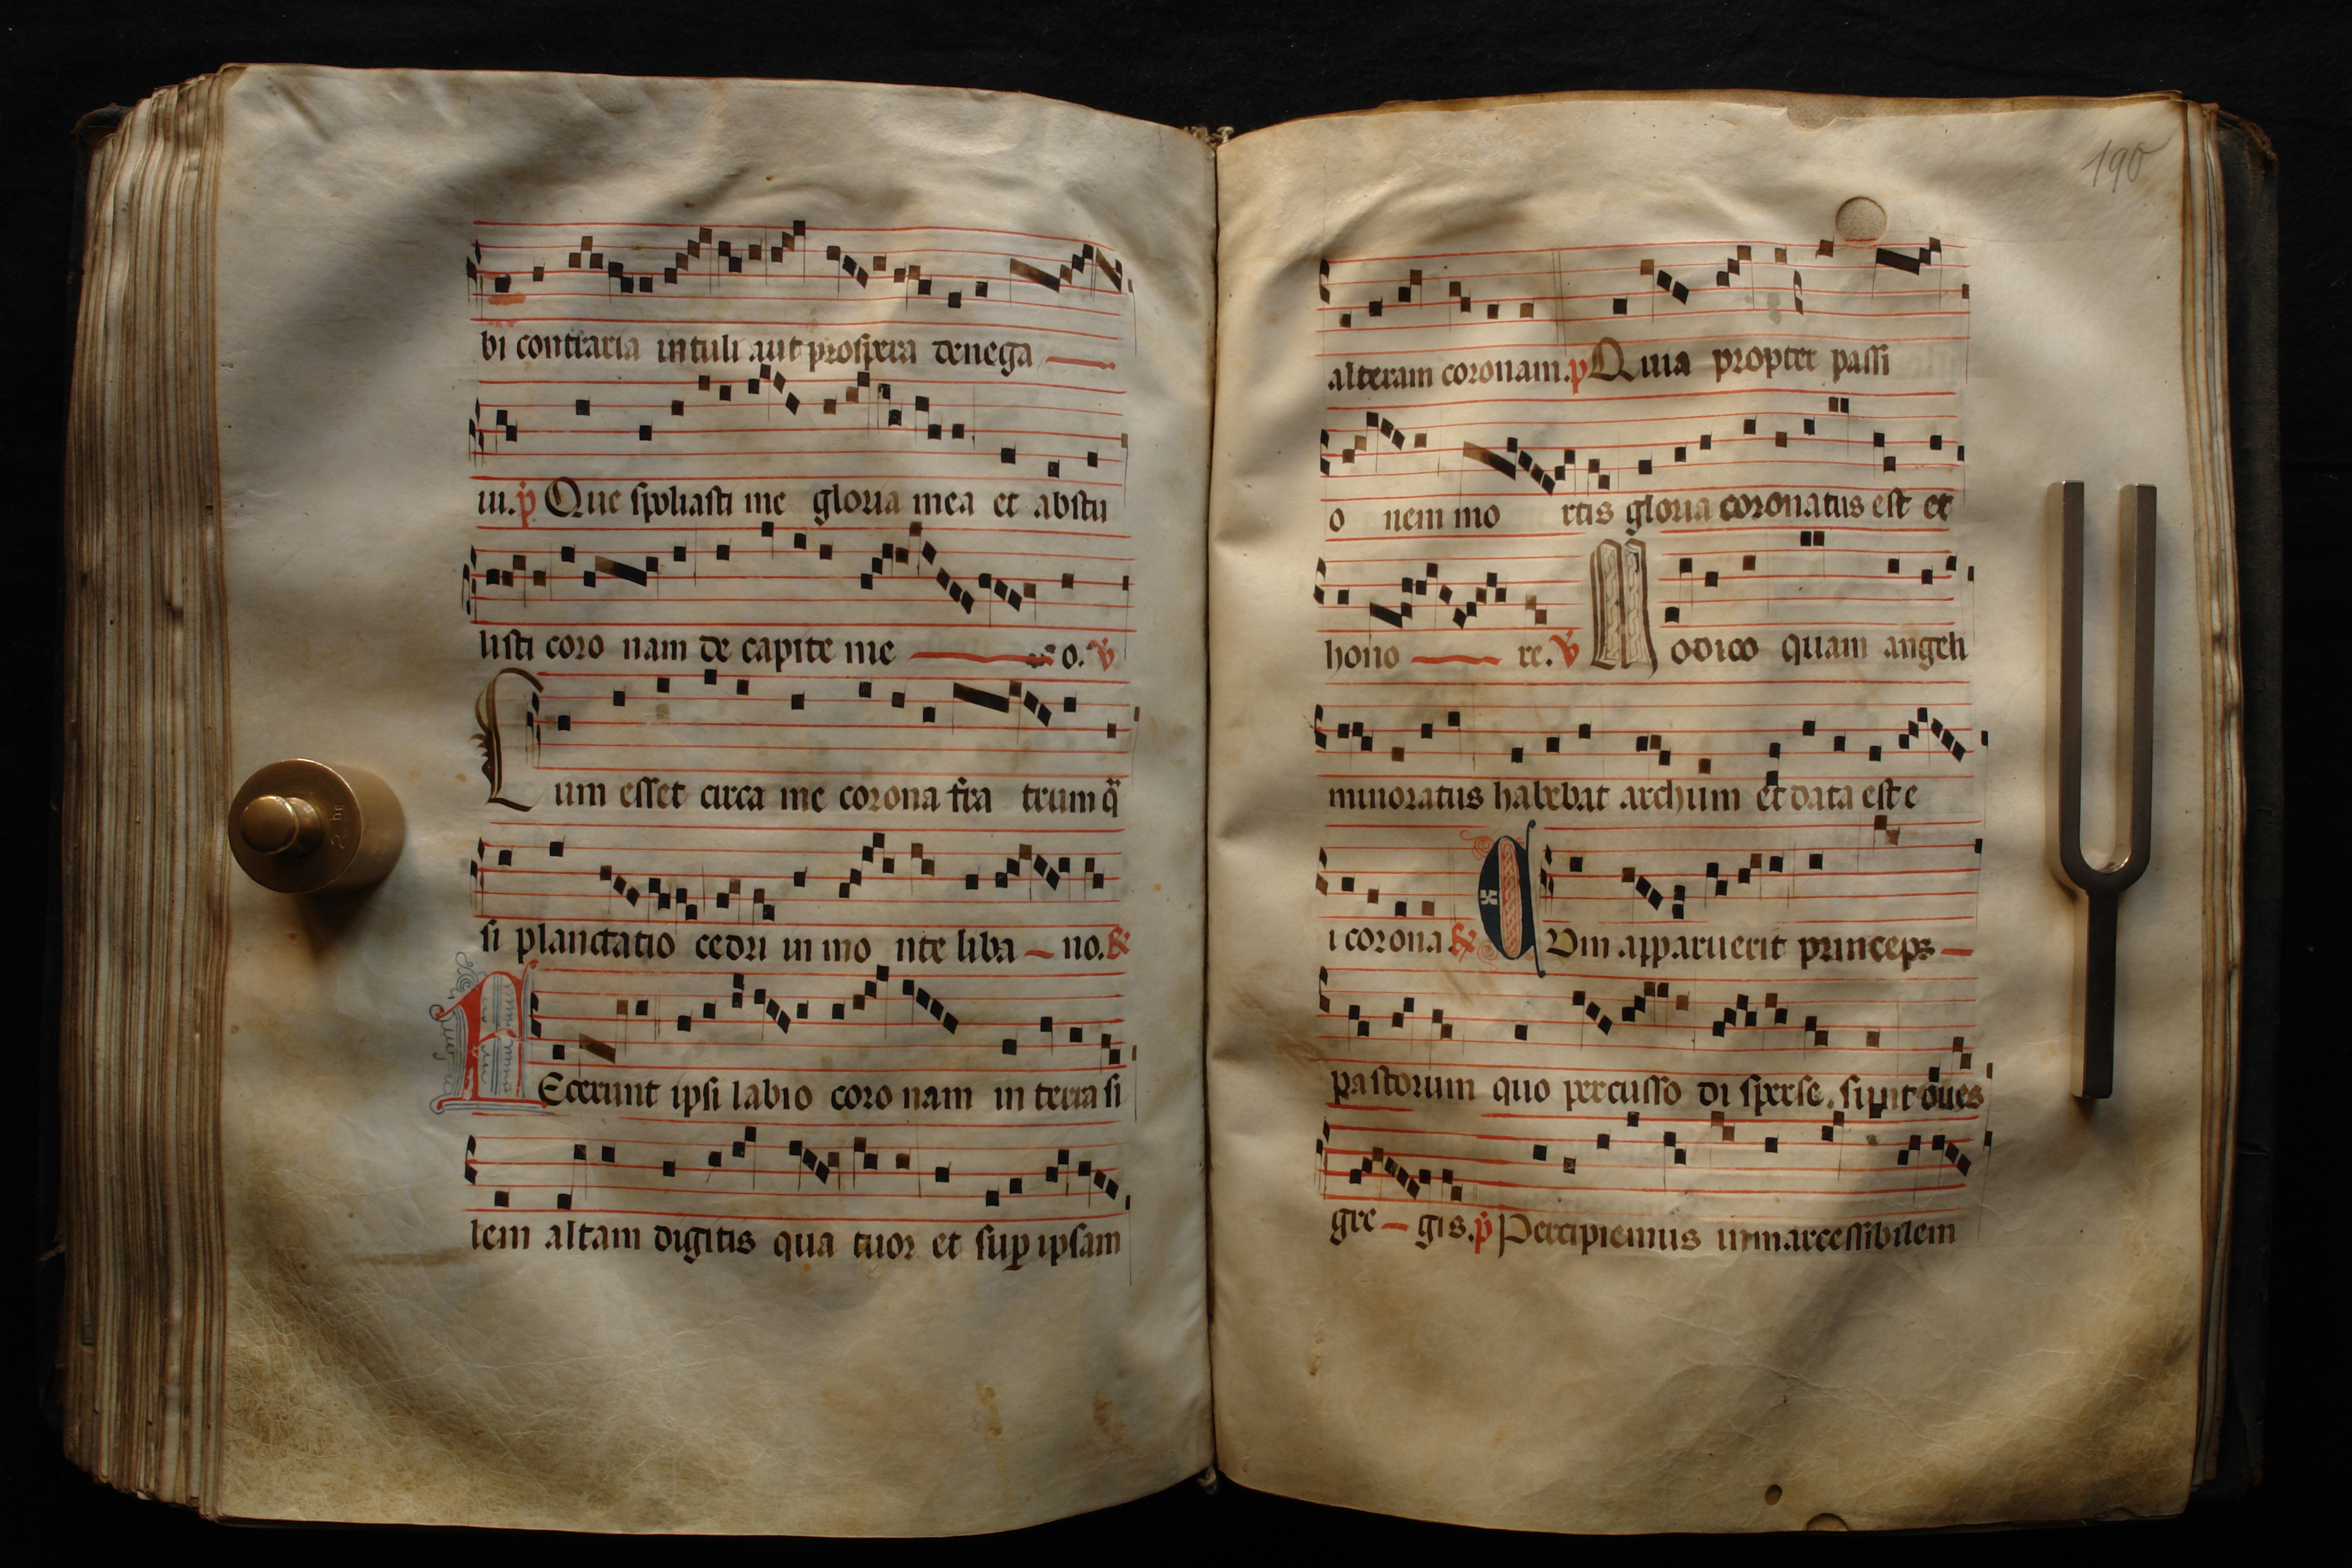 bi contraria intuli aut prospera denega
ui. p Que spoliasti me gloria mea et abstu
listi coro nam de capite me o. V
Cum esset circa me corona fra trum q̄
si planctatio cedri in mo nte liba no. R
FEcerunt ipsi labio coro nam in terra si
lem altam digitis qua tuor et sup ipsam
190
alteram coronam. p Quia propter passi
o nem mo rtis gloria coronatus est et
hono re. V Modico quam angeli
minoratus habebat archum et data est e
i corona R CVm apparuerit princeps
pastorum quo percusso di sperse. sunt oues
gre gis. p Percipiemus immarcessibilem
2 hg